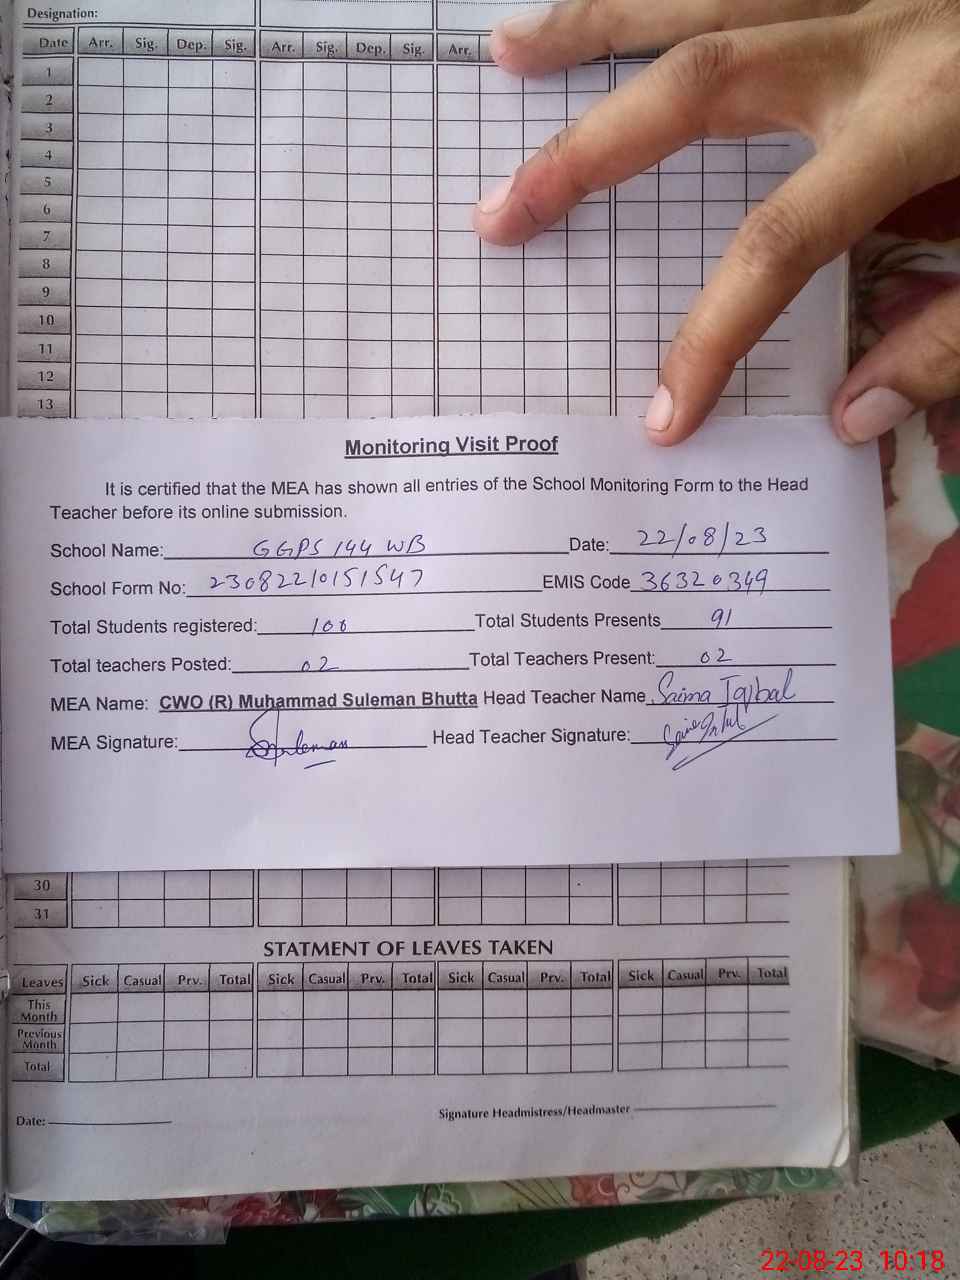 Designation:
Date Arr. Sig. Dep. Sig. Arr. Sig. Dep. Sig. Arr.
1
2
3
4
5
6
7
8
9
10
11
12
13
Monitoring Visit Proof
It is certified that the MEA has shown all entries of the School Monitoring Form to the Head
Teacher before its online submission.
School Name: GGPS 144 WB Date: 22/08/23
School Form No: 2308220151547 EMIS Code 36320349
Total Students registered: 100 Total Students Presents 91
Total teachers Posted: 02 Total Teachers Present: 02
MEA Name: CWO (R) Muhammad Suleman Bhutta Head Teacher Name Saima Iqbal
MEA Signature: Suleman Head Teacher Signature:
30
31
STATMENT OF LEAVES TAKEN
Leaves Sick Casual Prv. Total Sick Casual Prv. Total Sick Casual Prv. Total Sick Casual Prv. Total
This
Month
Previous
Month
Total
Date: Signature Headmistress/Headmaster
22-08-23 10:18